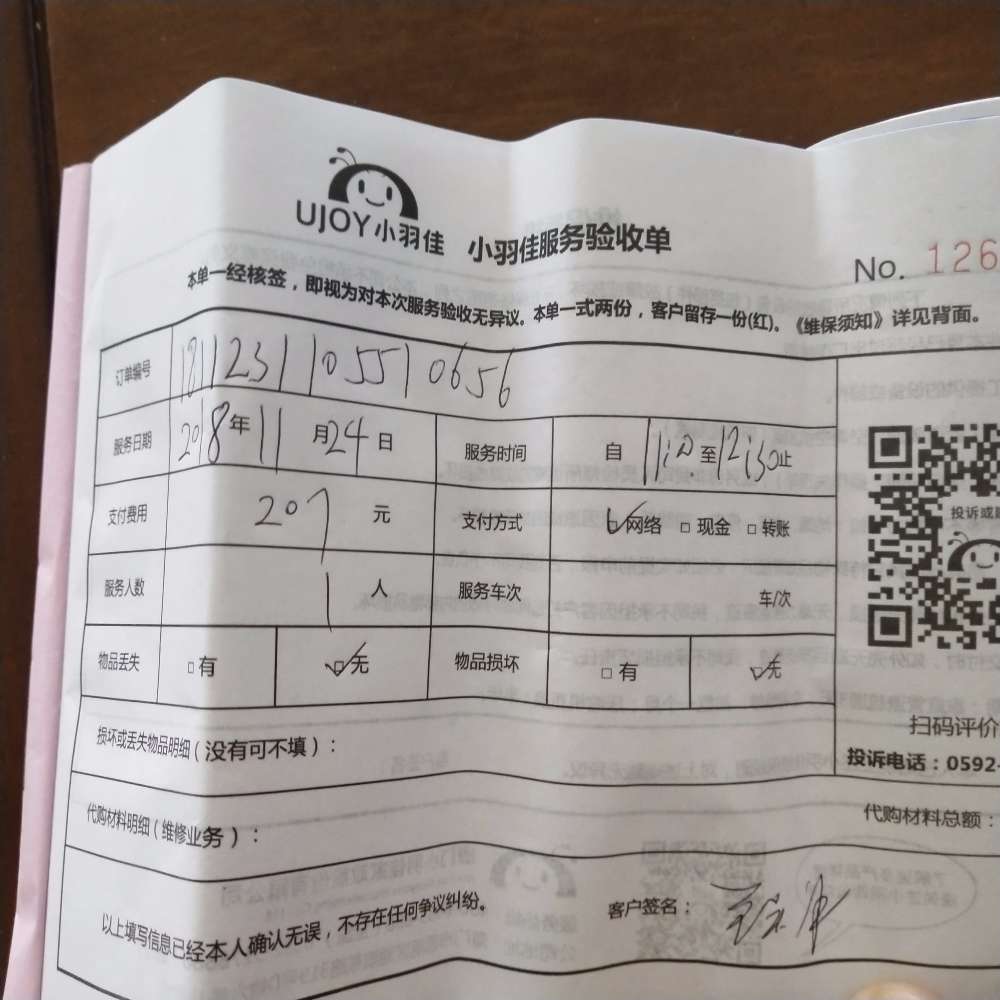 UJOY小羽佳 小羽佳服务验收单
No. 126
本单一经核签，即视为对本次服务验收无异议。本单一式两份，客户留存一份(红)。《维保须知》详见背面。
订单编号 1811231105510656
服务日期 2018年11月24日 服务时间 自 至12:30止
支付费用 207 元 支付方式 □网络 □现金 □转账
服务人数 1 人 服务车次 车/次
物品丢失 □有 □无 物品损坏 □有 □无
投诉或
扫码评价
投诉电话：0592-
损坏或丢失物品明细（没有可不填）：
代购材料明细（维修业务）： 代购材料总额：
以上填写信息已经本人确认无误，不存在任何争议纠纷。 客户签名：